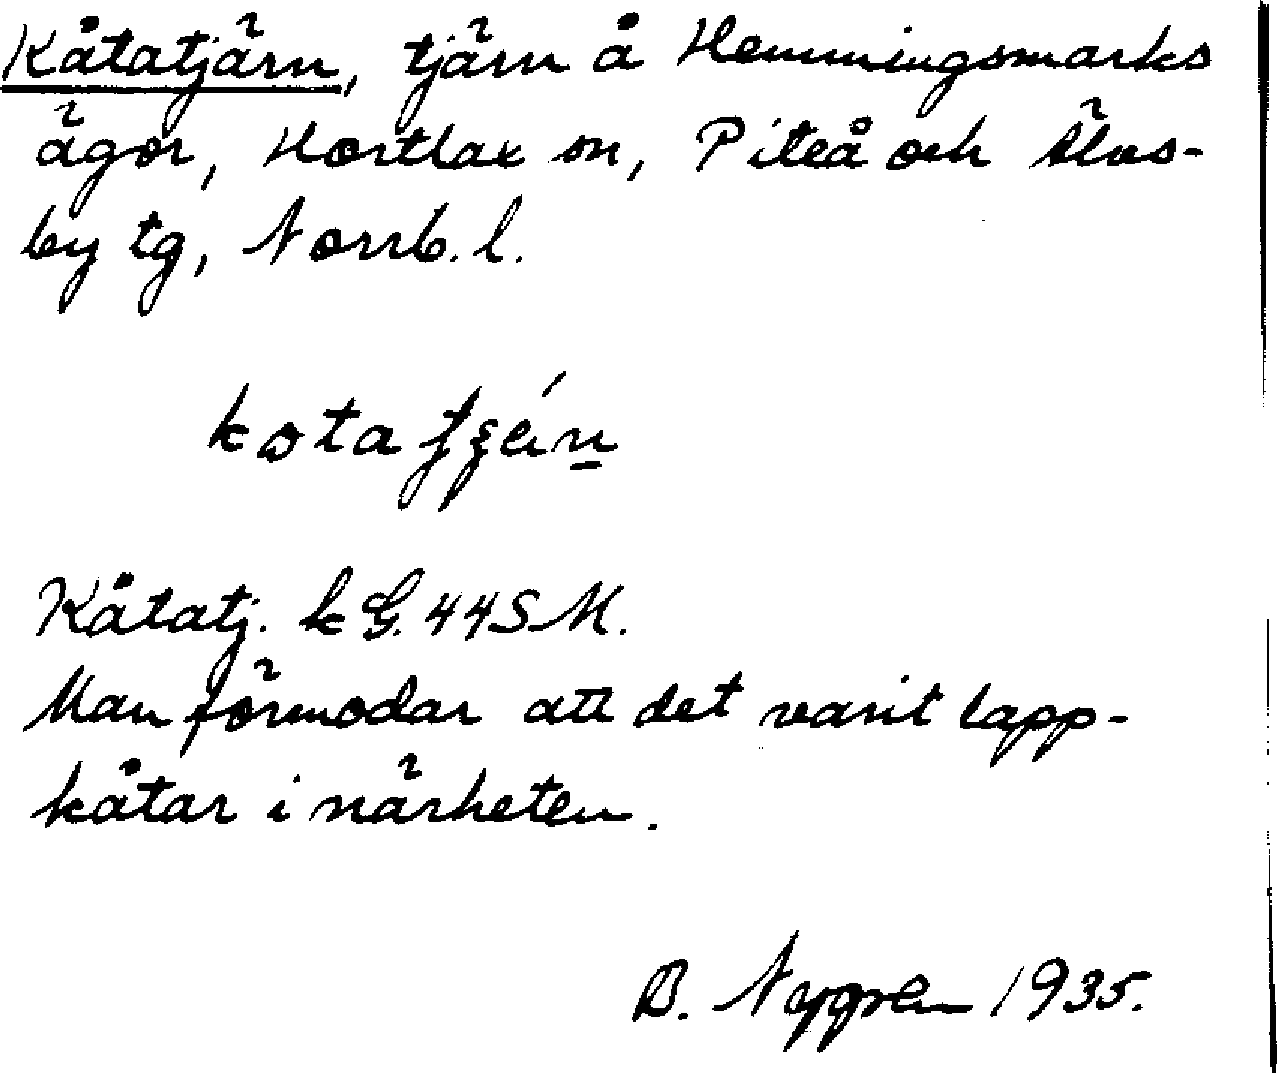 Kåtatjärn, tjärn å Hemmingsmarks
ägor, Hortlax sn, Piteå och Älvs-
by tg, Norrb. l.
Kåtatj. k G. 44 S M.
Man förmodar att det varit lapp-
kåtar i närheten.
B. Nygren 1935.